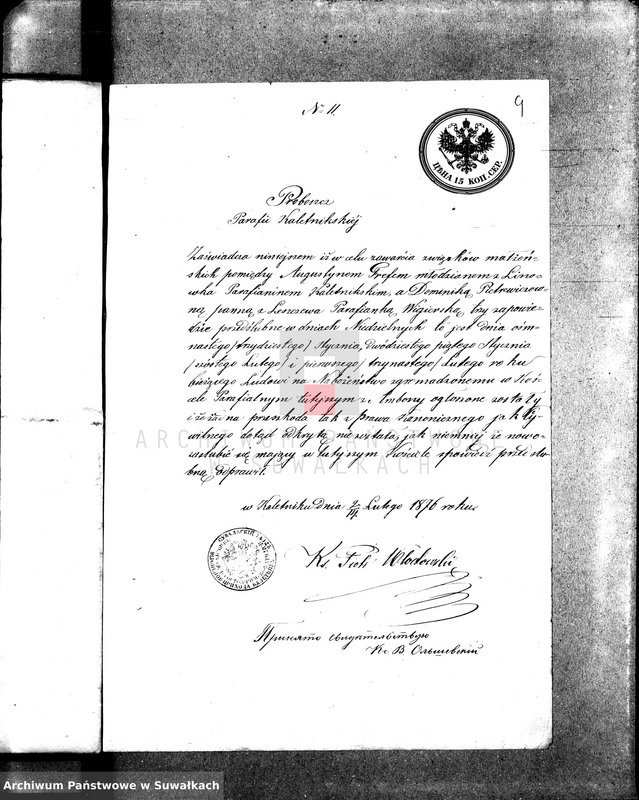 № 11.
9
ЦѢНА 15 КОП. СЕР.
Proboszcz
Parafii Kaletnikskiéj
Zaświadcza niniejszem iż w celu zawarcia związków małżeń-
skich pomiędzy Augustynem Grefem młodzianem z Lino-
wka Parafianinem Kaletnikskim, a Dominiką Pietrewiczow-
ną panną z Leszczewa Parafianką Wigierską, trzy zapowie-
dzie przedślubne w dniach Niedzielnych to jest dnia ośm-
nastego /trzydziestego/ Stycznia, Dwódziestego piątego Stycznia
/szóstego Lutego/ i pierwszego /trzynastego/ Lutego roku
bieżącego Ludowi na Nabożeństwo zgromadzonemu w Koś-
ciele Parafialnym tutejszym z Ambony ogłoszone zostały
i że żadna przeszkoda tak z prawa kanonicznego jak Cy-
wilnego dotąd odkrytą nie została, jak niemniéj że nowo-
zaślubić się mający w tutejszym Kościele spowiedź przedślu-
bną odprawił.
w Kaletniku Dnia Lutego 1876 roku
Ks. Piotr Włodowski
Принято свидѣтельствую
Кс. В. Ольшевскій
ARCHIWUM PAŃSTWOWE
W SUWAŁKACH
Archiwum Państwowe w Suwałkach